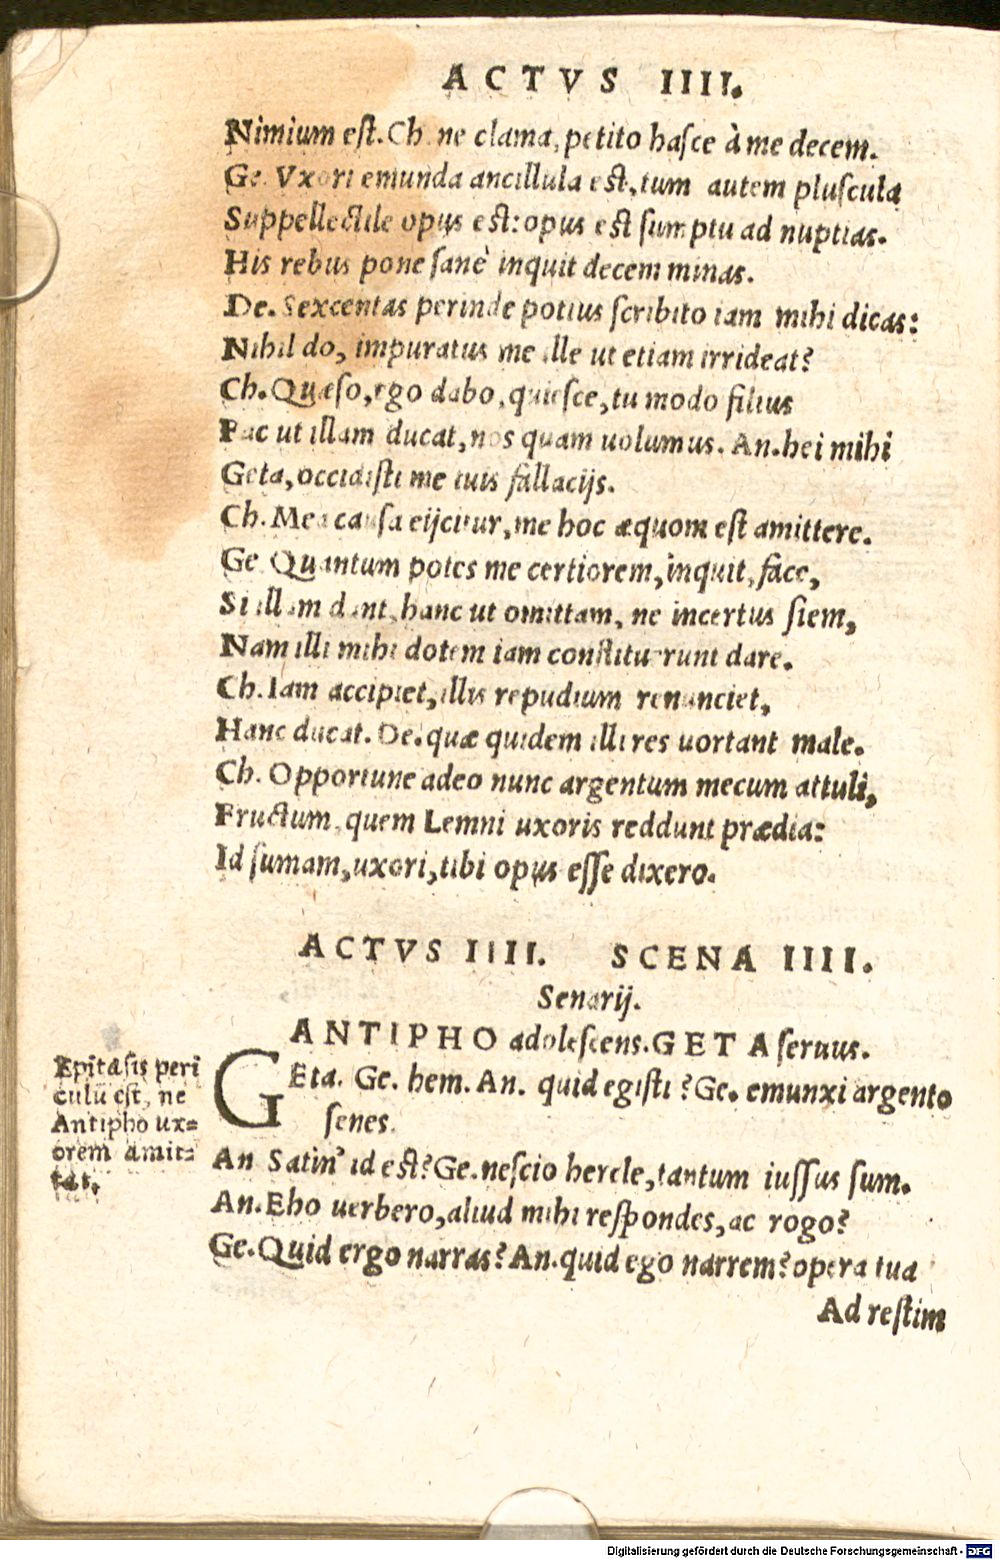 ACTVS IIII.
Nimium eſt. Ch. ne clama, petito haſce à me decem.
Ge. Vxori emunda ancillula eſt, tum autem pluſcula
Suppellectile opus eſt: opus eſt ſumptu ad nuptias.
His rebus pone ſanè inquit decem minas.
De. Sexcentas perinde potius ſcribito iam mihi dicas:
Nihil do, impuratus me ille ut etiam irrideat?
Ch. Quæſo, ego dabo, quieſce, tu modo filius
Fac ut illam ducat, nos quam uolumus. An. hei mihi
Geta, occidiſti me tuis fallacijs.
Ch. Mea cauſa eijcitur, me hoc æquom eſt amittere.
Ge. Quantum potes me certiorem, inquit, face,
Si illam dant, hanc ut omittam, ne incertus ſiem,
Nam illi mihi dotem iam conſtituerunt dare.
Ch. Iam accipiet, illis repudium renunciet,
Hanc ducat. De. quæ quidem illi res uortant male.
Ch. Opportune adeo nunc argentum mecum attuli,
Fructum, quem Lemni uxoris reddunt prædia:
Id ſumam, uxori, tibi opus eſſe dixero.
ACTVS IIII. SCENA IIII.
Senarij.
ANTIPHO adoleſcens. GETA ſeruus.
GEta. Ge. hem. An. quid egiſti? Ge. emunxi argento
ſenes.
An Satin' id eſt? Ge. neſcio hercle, tantum iuſſus ſum.
An. Eho uerbero, aliud mihi reſpondes, ac rogo?
Ge. Quid ergo narras? An. quid ego narrem? opera tua
Ad reſtim
Epitaſis peri
culū eſt, ne
Antipho ux=
orem amit=
tat.
Digitalisierung gefördert durch die Deutsche Forschungsgemeinschaft - DFG